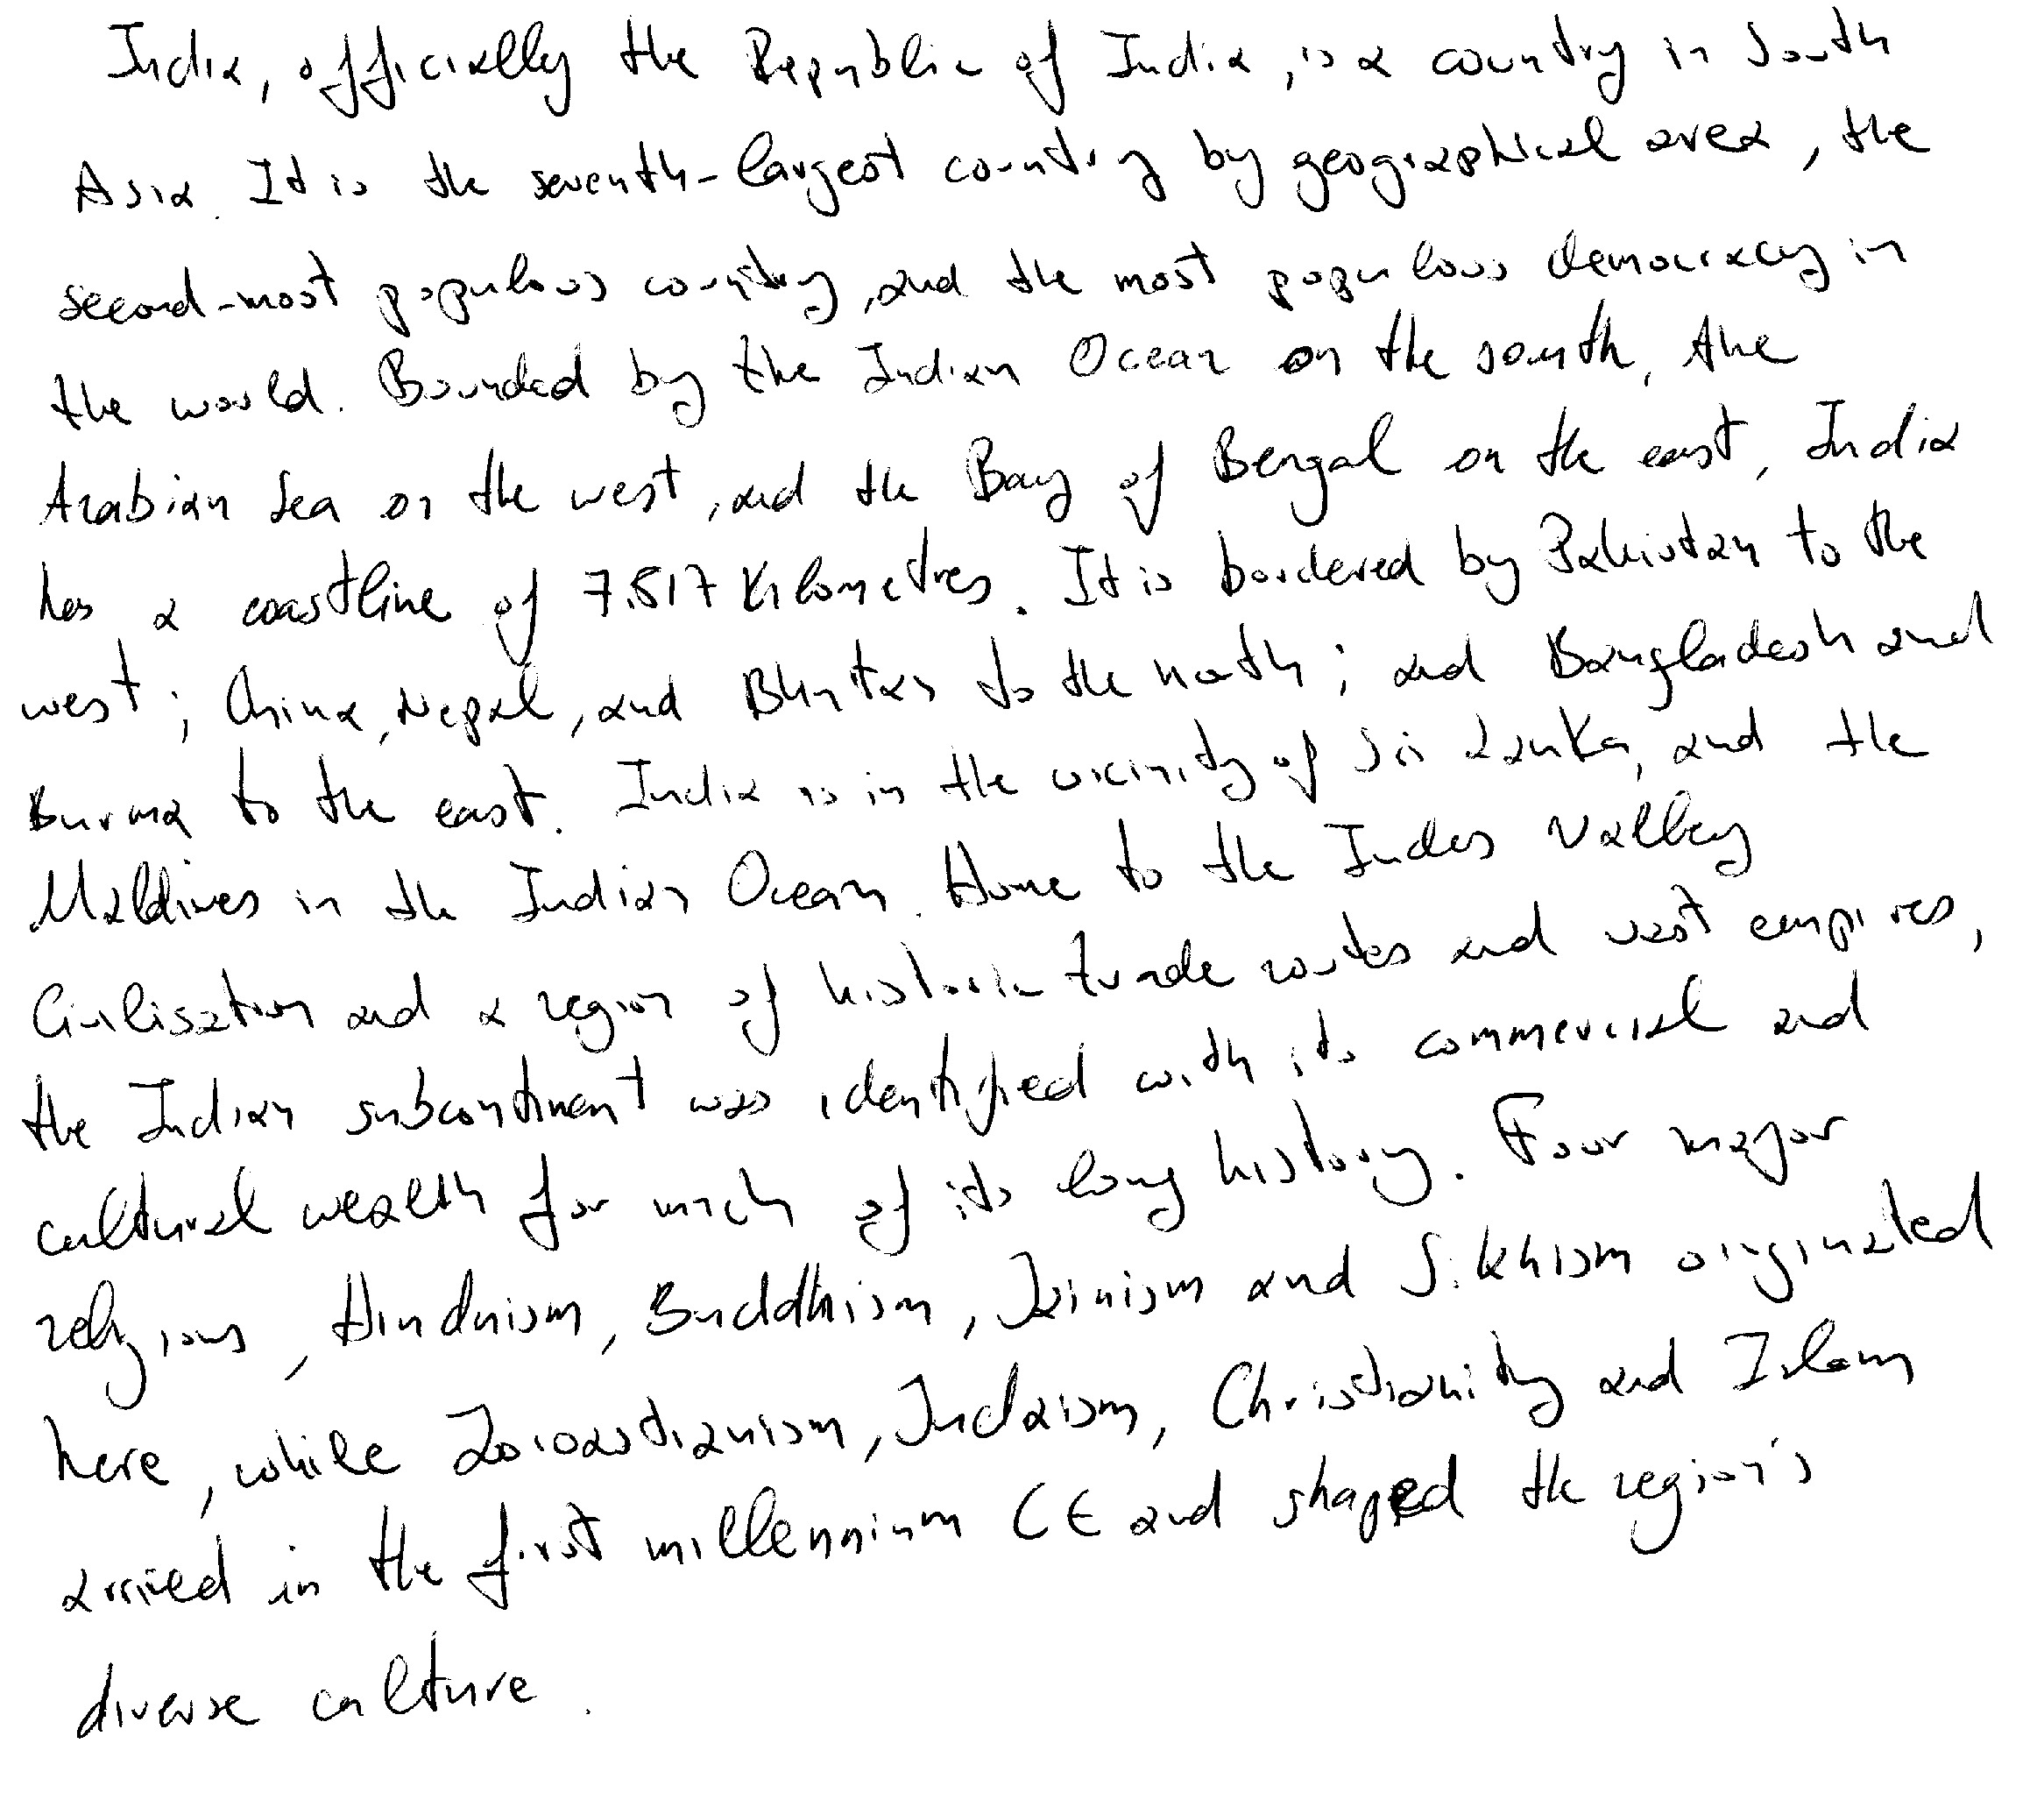 India, officially the Republic of India, is a country in South
Asia. It is the seventh-largest country by geographical area, the
second-most populous country, and the most populous democracy in
the world. Bounded by the Indian Ocean on the south, the
Arabian Sea on the west, and the Bay of Bengal on the east, India
has a coastline of 7.517 kilometres. It is bordered by Pakistan to the
west; China, Nepal, and Bhutan to the north; and Bangladesh and
Burma to the east. India is in the vicinity of Sri Lanka, and the
Maldives in the Indian Ocean. Home to the Indus Valley
Civilisation and a region of historic trade routes and vast empires,
the Indian subcontinent was identified with its commercial and
cultural wealth for much of its long history. Four major
religions, Hinduism, Buddhism, Jainism and Sikhism originated
here, while Zoroastrianism, Judaism, Christianity and Islam
arrived in the first millennium CE and shaped the region's
diverse culture.